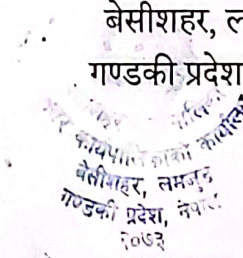 बेसीशहर, ल
गण्डकी प्रदेश
कार्यपालिकाको कार्यालय
बेसीशहर, लमजुङ
गण्डकी प्रदेश, नेपाल
२०७३